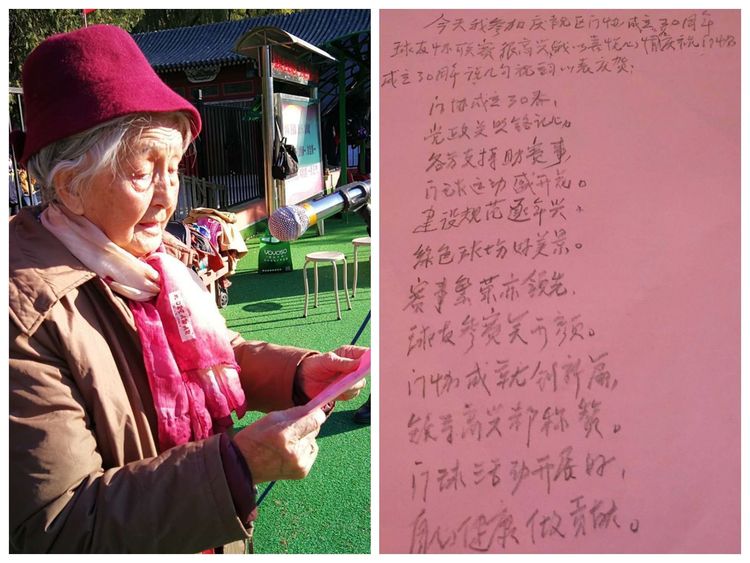 今天我参加庆祝区门协成立30周年
球友杯联赛很高兴,我以喜悦心情庆祝门协
成立30周年说几句祝词以表庆贺:
门协成立30年,
党政关照铭记心,
各方支持财赛事,
门球运动盛开花。
建设规范逐年兴,
绿色球场好美景。
赛事繁荣亦领先,
球友参赛笑开颜。
门协成就创新篇,
领导高兴都称赞。
门球活动开展好,
身心健康做贡献。
VOUOSO